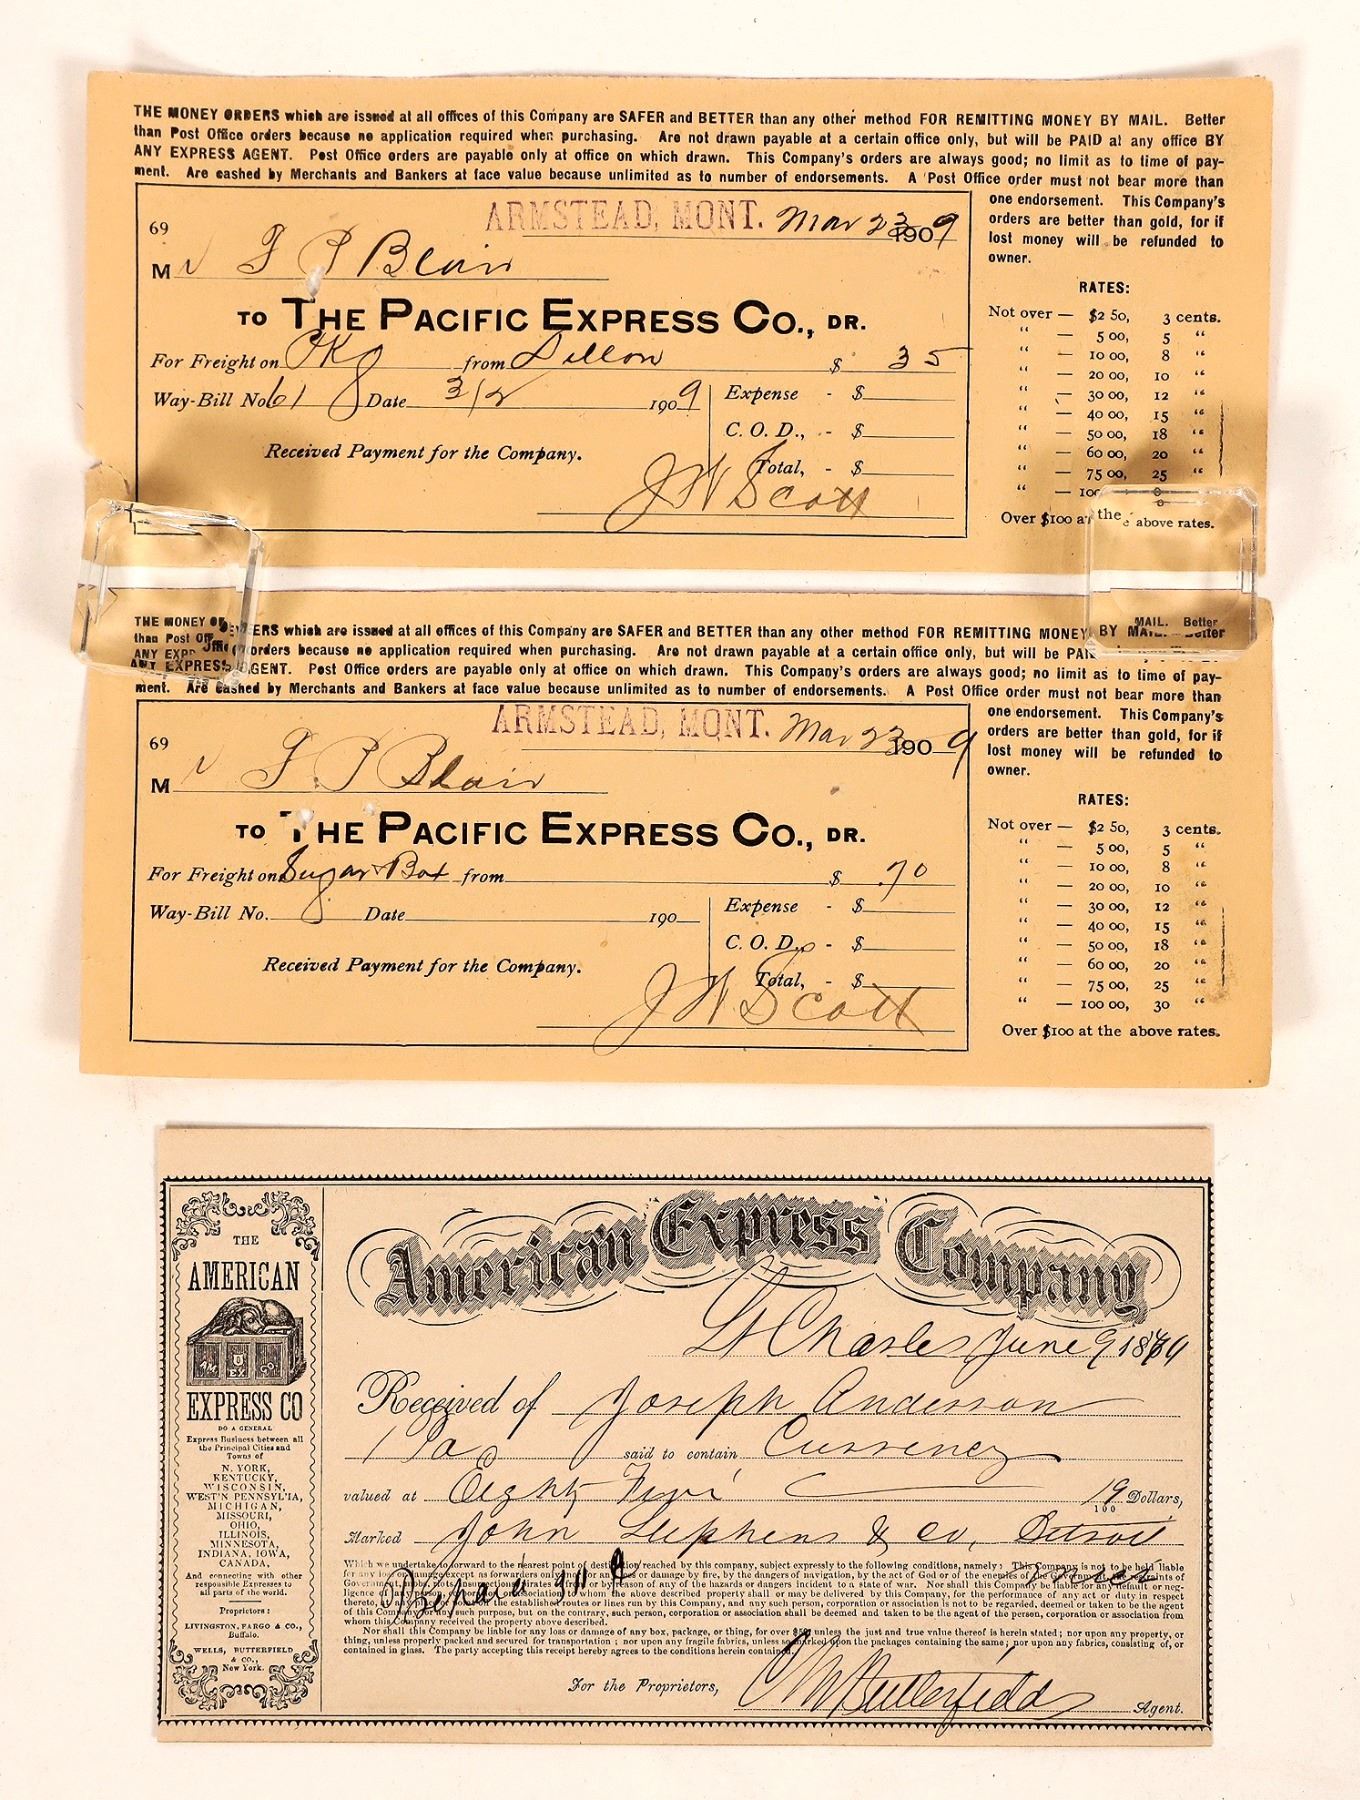 THE MONEY ORDERS which are issued at all offices of this Company are SAFER and BETTER than any other method FOR REMITTING MONEY BY MAIL. Better
than Post Office orders because no application required when purchasing. Are not drawn payable at a certain office only, but will be PAID at any office BY
ANY EXPRESS AGENT. Post Office orders are payable only at office on which drawn. This Company's orders are always good; no limit as to time of pay-
ment. Are cashed by Merchants and Bankers at face value because unlimited as to number of endorsements. A Post Office order must not bear more than
one endorsement. This Company's
orders are better than gold, for if
lost money will be refunded to
owner.
ARMSTEAD, MONT. Mar 23 1909
69
M
Blair
TO THE PACIFIC EXPRESS CO., DR.
For Freight on Pkg from Dillon $ 35
Way-Bill No. 61 Date 3/2 1909
Expense - $
C. O. D., - $
Total, - $
Received Payment for the Company.
J W Scott
RATES:
Not over — $2 50, 3 cents.
“ — 5 00, 5 “
“ — 10 00, 8 “
“ — 20 00, 10 “
“ — 30 00, 12 “
“ — 40 00, 15 “
“ — 50 00, 18 “
“ — 60 00, 20 “
“ — 75 00, 25 “
“ — 100
Over $100 at the above rates.
THE MONEY ORDERS which are issued at all offices of this Company are SAFER and BETTER than any other method FOR REMITTING MONEY BY MAIL. Better
than Post Office orders because no application required when purchasing. Are not drawn payable at a certain office only, but will be PAID
ANY EXPRESS AGENT. Post Office orders are payable only at office on which drawn. This Company's orders are always good; no limit as to time of pay-
ment. Are cashed by Merchants and Bankers at face value because unlimited as to number of endorsements. A Post Office order must not bear more than
one endorsement. This Company's
orders are better than gold, for if
lost money will be refunded to
owner.
ARMSTEAD, MONT. Mar 23 1909
69
M
Blair
TO THE PACIFIC EXPRESS CO., DR.
For Freight on Sugar & Box from $ .70
Way-Bill No. Date 190
Expense - $
C. O. D., - $
Total, - $
Received Payment for the Company.
J W Scott
RATES:
Not over — $2 50, 3 cents.
“ — 5 00, 5 “
“ — 10 00, 8 “
“ — 20 00, 10 “
“ — 30 00, 12 “
“ — 40 00, 15 “
“ — 50 00, 18 “
“ — 60 00, 20 “
“ — 75 00, 25 “
“ — 100 00, 30 “
Over $100 at the above rates.
THE
AMERICAN
AM EX CO.
EXPRESS CO
DO A GENERAL
Express Business between all
the Principal Cities and
Towns of
N. YORK,
KENTUCKY,
WISCONSIN,
WEST'N PENNSYL'IA,
MICHIGAN,
MISSOURI,
OHIO,
ILLINOIS,
MINNESOTA,
INDIANA, IOWA,
CANADA,
And connecting with other
responsible Expresses to
all parts of the world.
Proprietors:
LIVINGSTON, FARGO & CO.,
Buffalo.
WELLS, BUTTERFIELD
& CO.,
New York.
American Express Company
St Charles June 9 18
Received of Joseph Anderson
1 Pa said to contain Currency
valued at Eighty Five 19/100 Dollars,
Marked John Stephens & Co, Detroit
Which we undertake to forward to the nearest point of destination reached by this company, subject expressly to the following conditions, namely: This Company is not to be held liable
for any loss or damage except as forwarders only, nor for any loss or damage by fire, by the dangers of navigation, by the act of God or of the enemies of the Government, the restraints of
Government, mobs, riots, insurrections, pirates, or from or by reason of any of the hazards or dangers incident to a state of war. Nor shall this Company be liable for any default or neg-
ligence of any person, corporation or association to whom the above described property shall or may be delivered by this Company, for the performance of any act or duty in respect
thereto, at any point off the established routes or lines run by this Company, and any such person, corporation or association is not to be regarded, deemed or taken to be the agent
of this Company for any such purpose, but on the contrary, such person, corporation or association shall be deemed and taken to be the agent of the person, corporation or association from
whom this Company received the property above described.
Nor shall this Company be liable for any loss or damage of any box, package, or thing, for over $50 unless the just and true value thereof is herein stated; nor upon any property, or
thing, unless properly packed and secured for transportation; nor upon any fragile fabrics, unless so marked upon the packages containing the same; nor upon any fabrics, consisting of, or
contained in glass. The party accepting this receipt hereby agrees to the conditions herein contained.
For the Proprietors, Butterfield Agent.